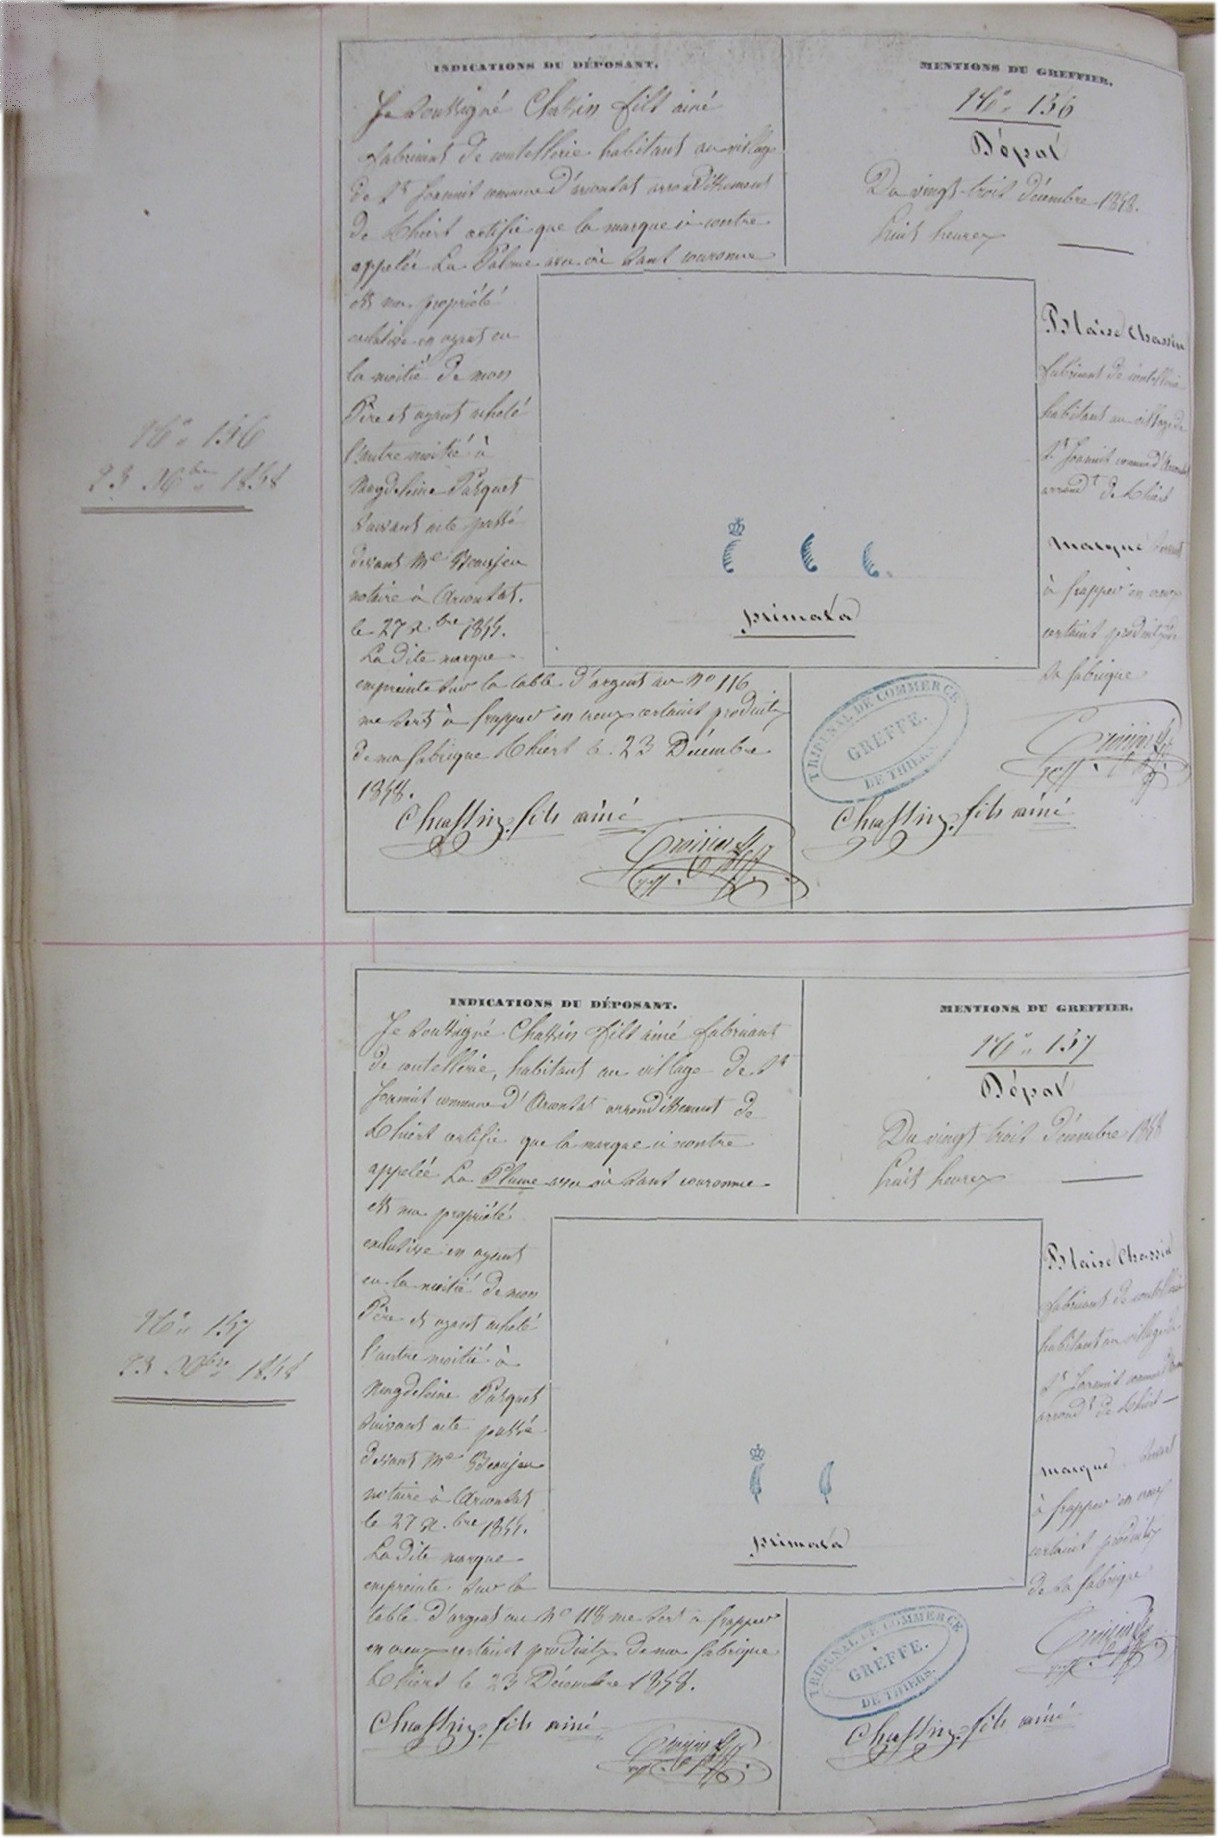 INDICATIONS DU DÉPOSANT.
Je soussigné Chassin fils ainé
fabricant de coutellerie habitant au village
de St Jormit commune d'arconsat arrondissement
de Thiers certifie que la marque ci contre
appelée La Palme avec ou sans couronne
est ma propriété
exclusive en ayant eu
la moitié de mon
Père et ayant acheté
l'autre moitié à
Magdeleine Pasques
suivant acte passé
devant Me Beaujeu
notaire à Arconsat.
le 27 Xbre
La dite marque
empreinte sur la table d'argent au No 116
me sert à frapper en creux certains produits
de ma fabrique Thiers le 23 Décembre
1858.
Chassin. fils ainé
MENTIONS DU GREFFIER.
No 136
Dépot
Du vingt trois Décembre 1858.
huit heures
Blaise Chassin
fabricant de coutellerie
habitant au village de
St Jormit commune d'Arconsat
arrondt de Thiers
marque servant
à frapper en creux
certains produits de
sa fabrique
primata
TRIBUNAL DE COMMERCE
GREFFE.
DE THIERS.
Chassin. fils ainé
No 136
23 Xbre 1858
INDICATIONS DU DÉPOSANT.
Je soussigné Chassin fils ainé fabricant
de coutellerie, habitant au village de St
Jormit commune d'Arconsat arrondissement de
Thiers certifie que la marque ci contre
appelée La Plume avec ou sans couronne
est ma propriété
exclusive en ayant
eu la moitié de mon
Père et ayant acheté
l'autre moitié à
Magdeleine Pasques
suivant acte passé
devant Me Beaujeu
notaire à Arconsat
le 27 Xbre
La dite marque
empreinte sur la
table d'argent au No 118 me sert à frapper
en creux certains produits de ma fabrique
Thiers le 23 Décembre 1858.
Chassin. fils ainé
MENTIONS DU GREFFIER.
No 137
Dépot
Du vingt trois Décembre 1858
huit heures
Blaise Chassin
fabricant de coutellerie
habitant au village de
St Jormit commune
arrondt de Thiers
marque servant
à frapper en creux
certains produits
de sa fabrique
primata
TRIBUNAL DE COMMERCE
GREFFE.
DE THIERS.
Chassin. fils ainé
No 137
23 Xbre 1858